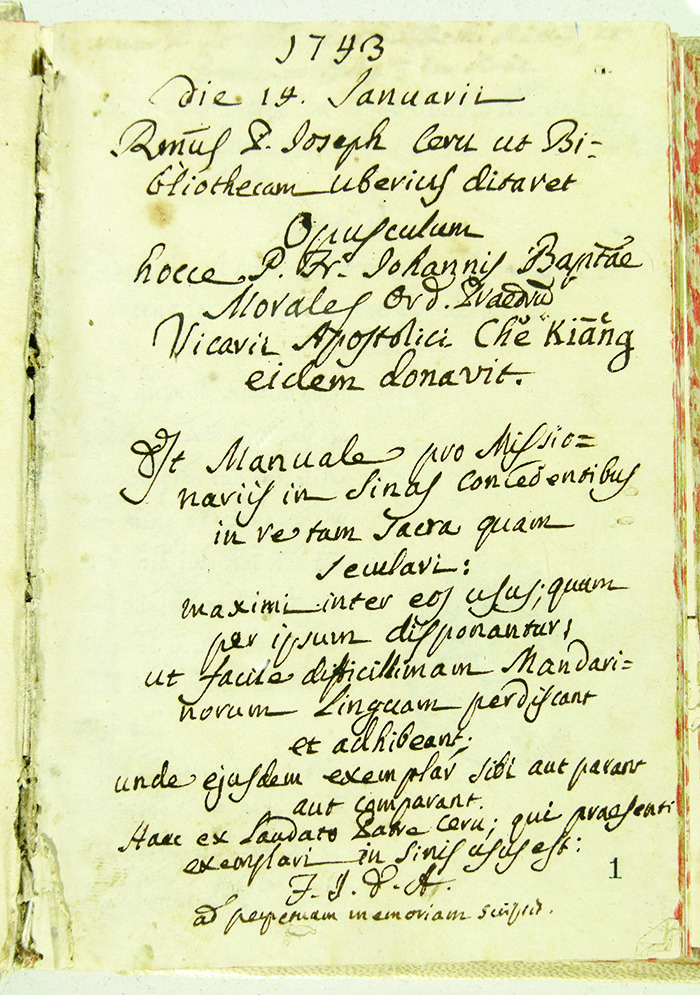 1743
die 14. Januarii
Rmūs P. Joseph Ceru ut Bi=
bliothecam uberius ditaret
Opusculum
hocce P. Fr. Johannis Baptāe
Morales Ord. Praed
Vicarii Apostolici Chĕ Kiāng
eidem donavit.
Et Manuale pro Missio=
nariis in Sinas Concedentibus
in re tam sacra quam
seculari:
maximi inter eos usus; quum
per ipsum disponantur;
ut facile difficillimam Mandari=
norum Linguam perdiscant
et adhibeant;
unde ejusdem exemplar sibi aut parant
aut comparant.
Haec ex Laudato Patre Ceru; qui praesenti
exemplari in Sinis usus est:
F. J. D. A.
ad perpetuam memoriam scripsit.
1